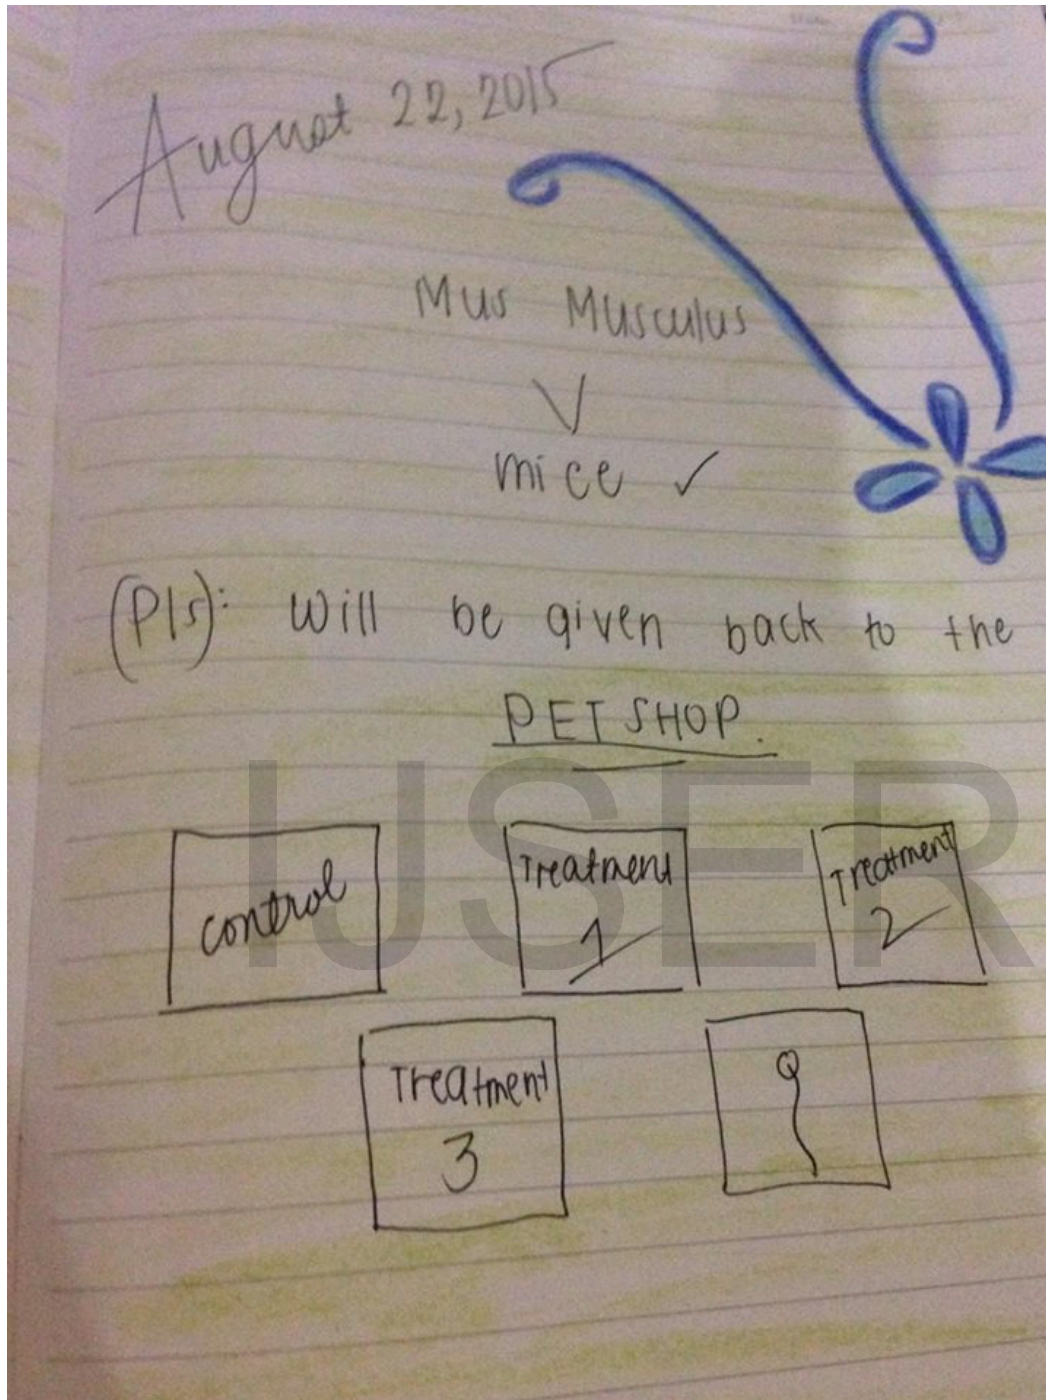 August 22, 2015
Mus Musculus
mice ✓
(Pls): Will be given back to the
PET SHOP.
IJSER
control
Treatment
1
Treatment
2
Treatment
3